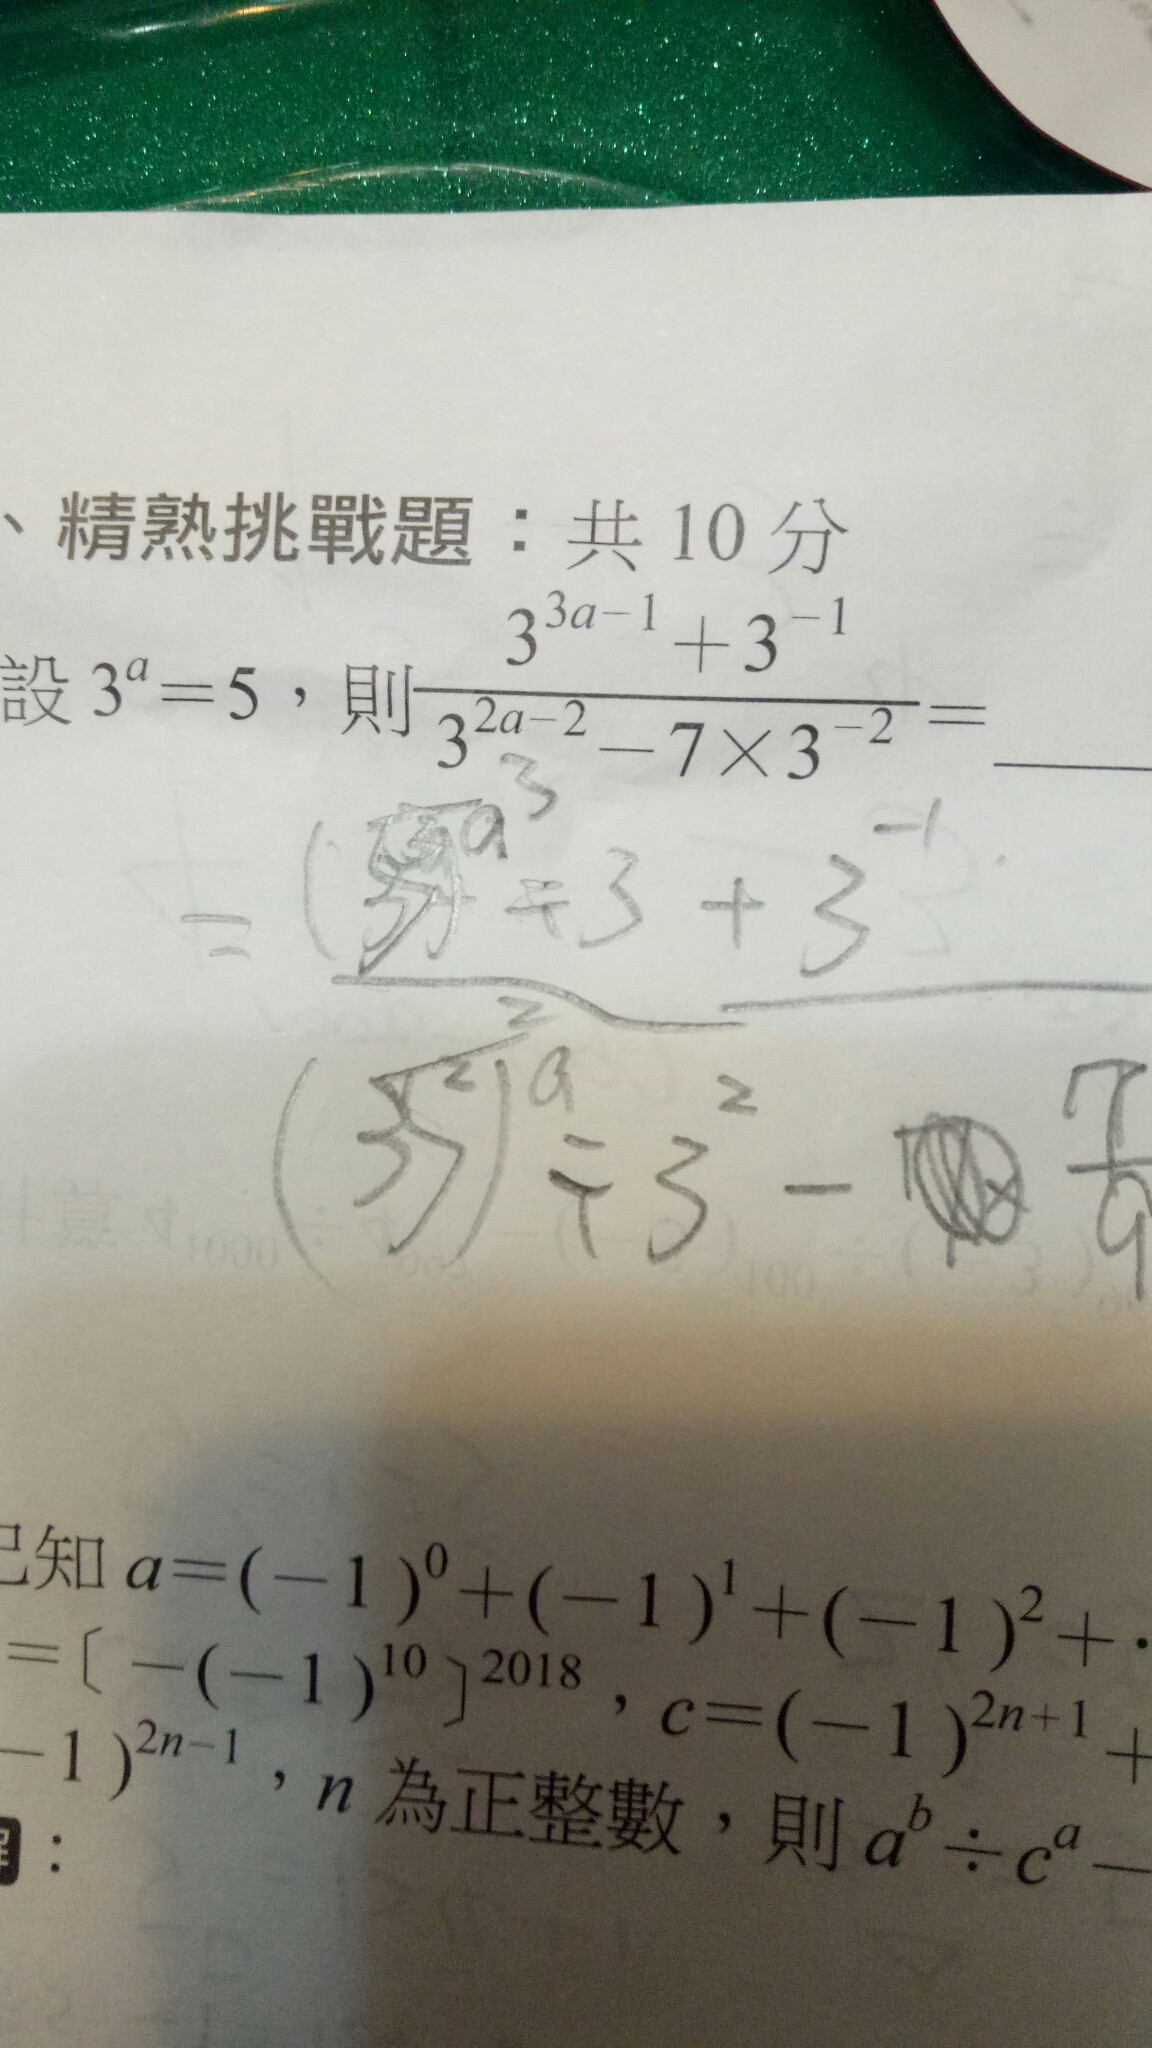 、精熟挑戰題：共 10 分
設 3^a=5，則 (3^{3a-1}+3^{-1})/(3^{2a-2}-7×3^{-2})=
÷3 + 3^{-1}
÷3^2 - 7/9
已知 a=(-1)^0+(-1)^1+(-1)^2+‧
=〔-(-1)^{10}〕^{2018}，c=(-1)^{2n+1}+
-1)^{2n-1}，n 為正整數，則 a^b÷c^a-
：